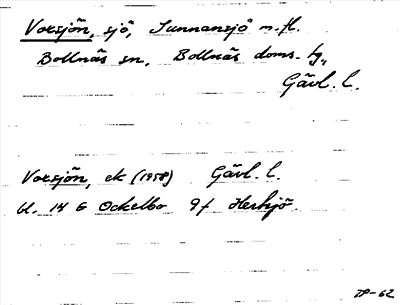 Vorsjön, sjö, Sunnansjö m.fl.
Bollnäs sn, Bollnäs doms. tg,
Gävl. l.
Vorsjön, ek (1958) Gävl. l.
bl. 14 G Ockelbo 9f Herksjö.
TP-62